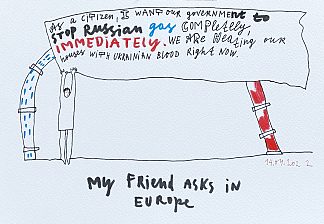 As a citizen, I want our government to
stop Russian gas completely,
IMMEDIATELY. We are heating our
houses with Ukrainian blood right now.
14.04.2022
My friend asks in
Europe